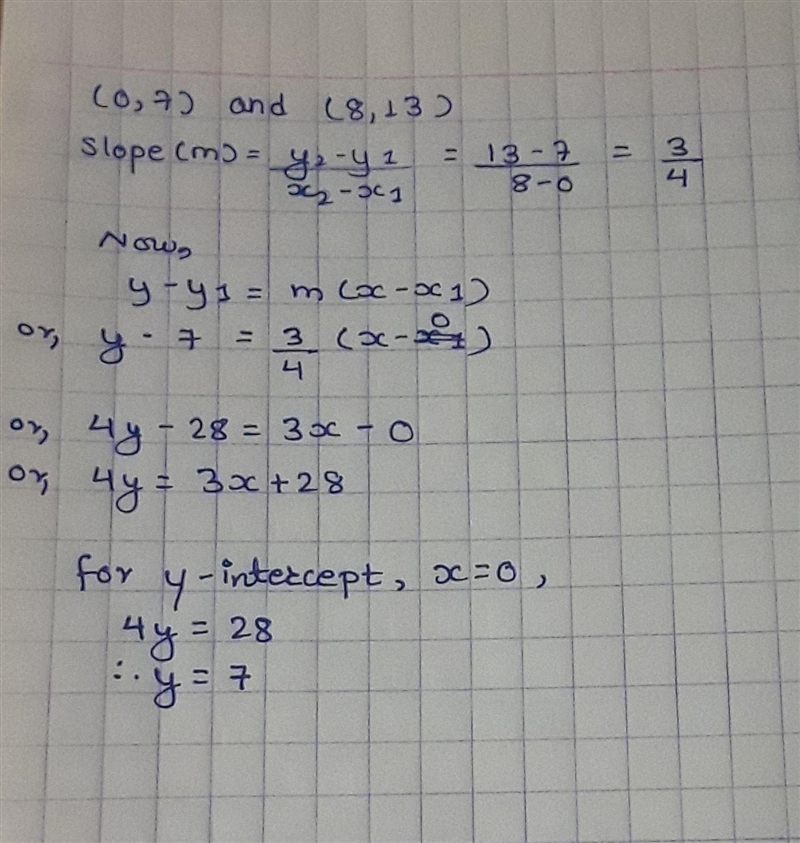 (0,7) and (8,13)
Slope(m) = y2-y1/x2-x1 = 13-7/8-0 = 3/4
Now,
y-y1 = m(x-x1)
or, y-7 = 3/4 (x-0)
or, 4y-28 = 3x-0
or, 4y = 3x+28
for y-intercept, x=0,
4y = 28
∴ y = 7